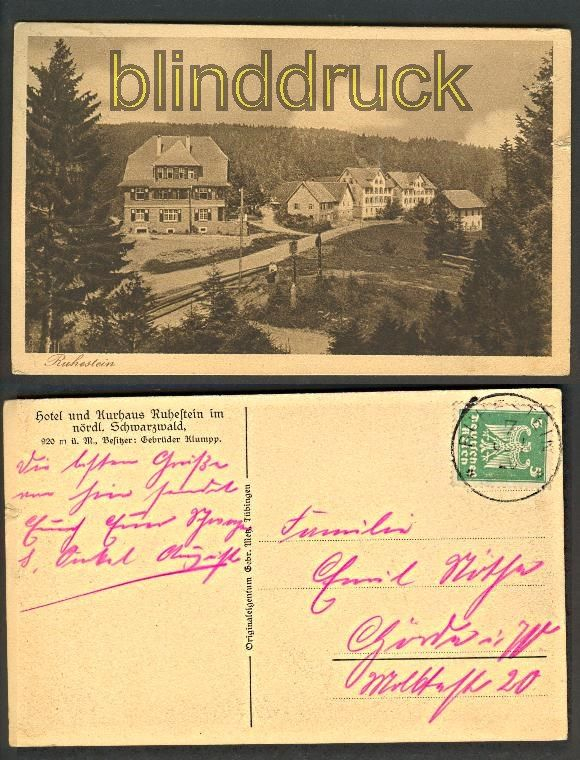 blinddruck
Ruhestein
Hotel und Kurhaus Ruhestein im
nördl. Schwarzwald,
920 m ü. M., Besitzer: Gebrüder Klumpp.
Die besten Grüße
von hier sendet
Euch Euer
u. Onkel August
Originaleigentum Gebr. Metz, Tübingen
Deutsches
Reich
5 5
Familie
Emil Nöthe
i/W
Moltkestr 20